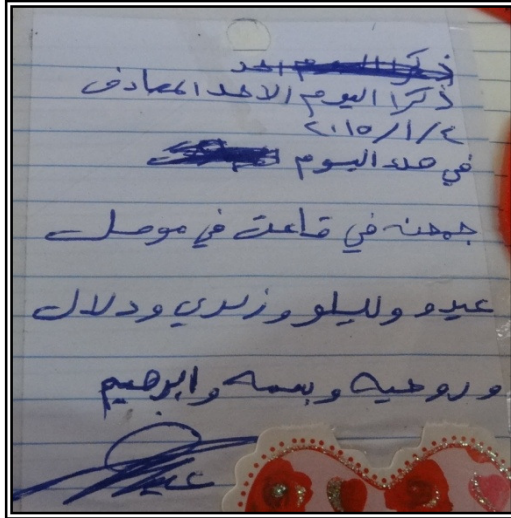 ذكرا اليوم الاحد المصادف
٢٠١٥/١/٢
في هذه اليوم
جمعنه في قاعت في موصل
عيدو وليلو وزيدي ودلال
وروحيه وبسمه وابرهيم
عيدو